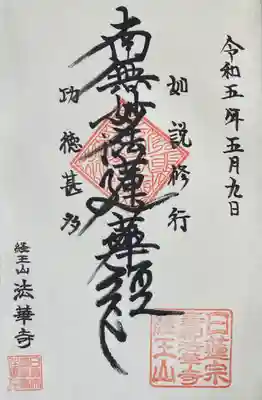 令和五年五月九日
如説修行
南無妙法蓮華経
功徳甚多
経王山 法華寺
日蓮宗
経王山